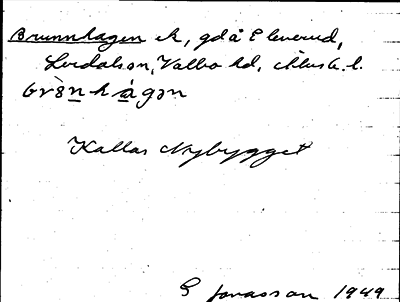 Brunnhagen ek, gd å Eleverud,
Lerdalsön, Valbo hd, Älvsb. l.
brȯ̀n h ágən
Kallas Nybygget
E Jonasson 1949